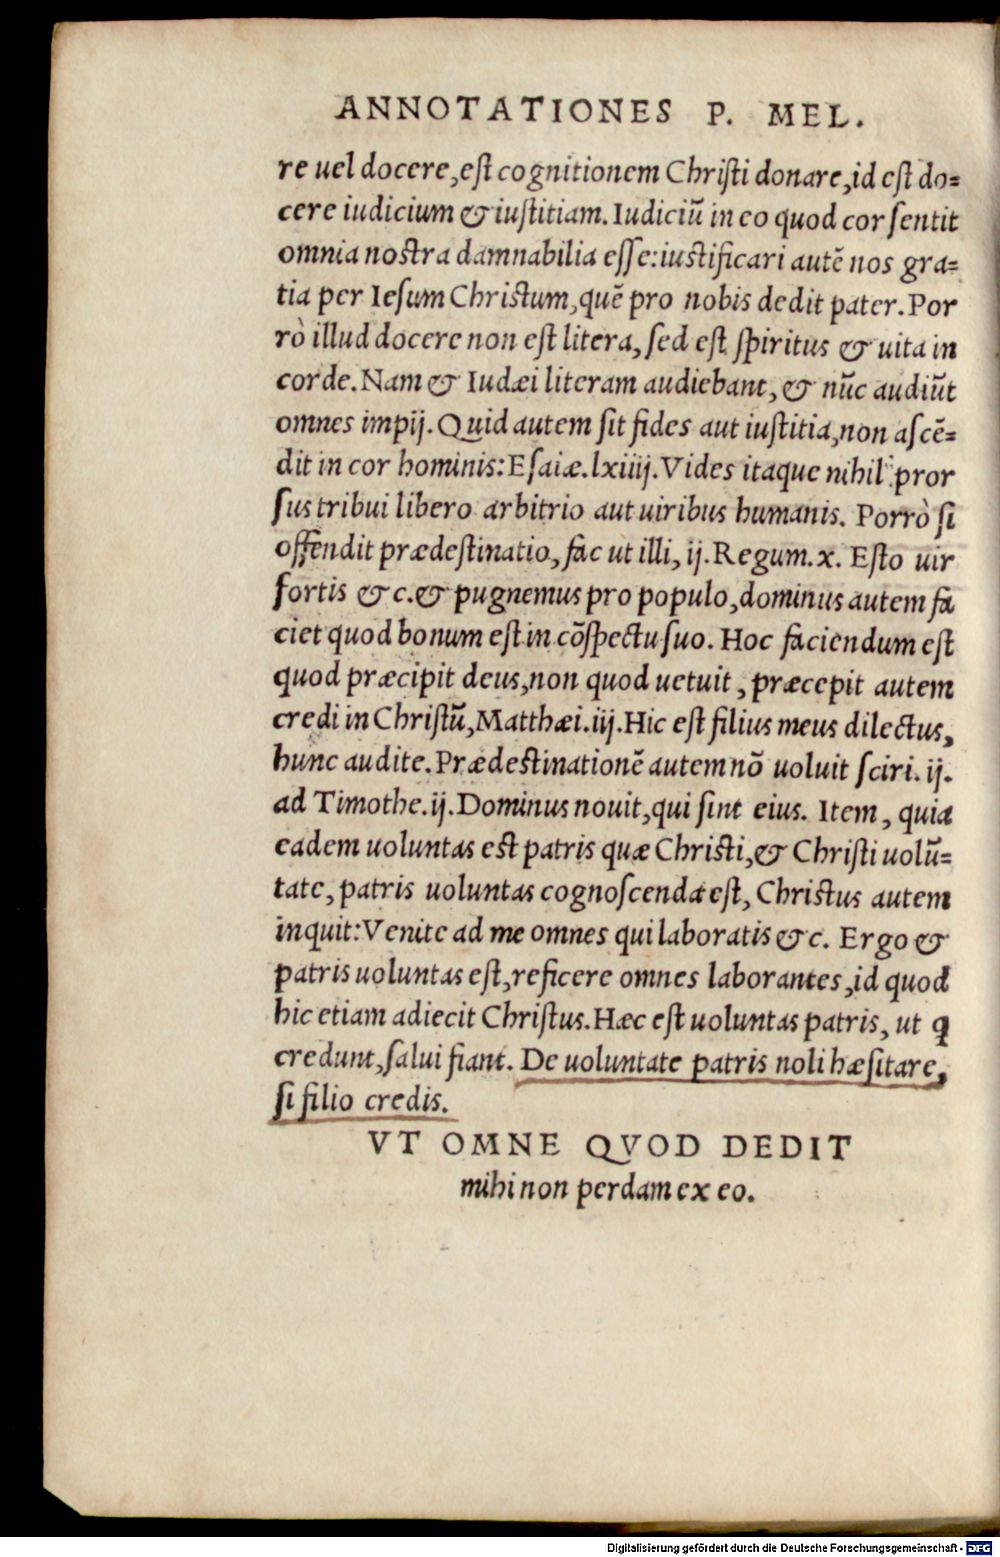 ANNOTATIONES P. MEL.
re uel docere, est cognitionem Christi donare, id est do=
cere iudicium & iustitiam. Iudiciũ in eo quod cor sentit
omnia nostra damnabilia esse: iustificari autẽ nos gra=
tia per Iesum Christum, quẽ pro nobis dedit pater. Por
rò illud docere non est litera, sed est spiritus & uita in
corde. Nam & Iudæi literam audiebant, & nũc audiũt
omnes impij. Quid autem sit fides aut iustitia, non ascẽ=
dit in cor hominis: Esaiæ. lxiiij. Vides itaque nihil pror
sus tribui libero arbitrio aut uiribus humanis. Porrò si
offendit prædestinatio, fac ut illi, ij. Regum. x. Esto uir
fortis &c. & pugnemus pro populo, dominus autem fa
ciet quod bonum est in cõspectu suo. Hoc faciendum est
quod præcipit deus, non quod uetuit, præcepit autem
credi in Christũ, Matthæi. iij. Hic est filius meus dilectus,
hunc audite. Prædestinationẽ autem nõ uoluit sciri. ij.
ad Timothe. ij. Dominus nouit, qui sint eius. Item, quia
eadem uoluntas est patris quæ Christi, & Christi uolũ=
tate, patris uoluntas cognoscenda est, Christus autem
inquit: Venite ad me omnes qui laboratis &c. Ergo &
patris uoluntas est, reficere omnes laborantes, id quod
hic etiam adiecit Christus. Hæc est uoluntas patris, ut q
credunt, salui fiant. De uoluntate patris noli hæsitare,
si filio credis.
VT OMNE QVOD DEDIT
mihi non perdam ex eo.
Digitalisierung gefördert durch die Deutsche Forschungsgemeinschaft - DFG